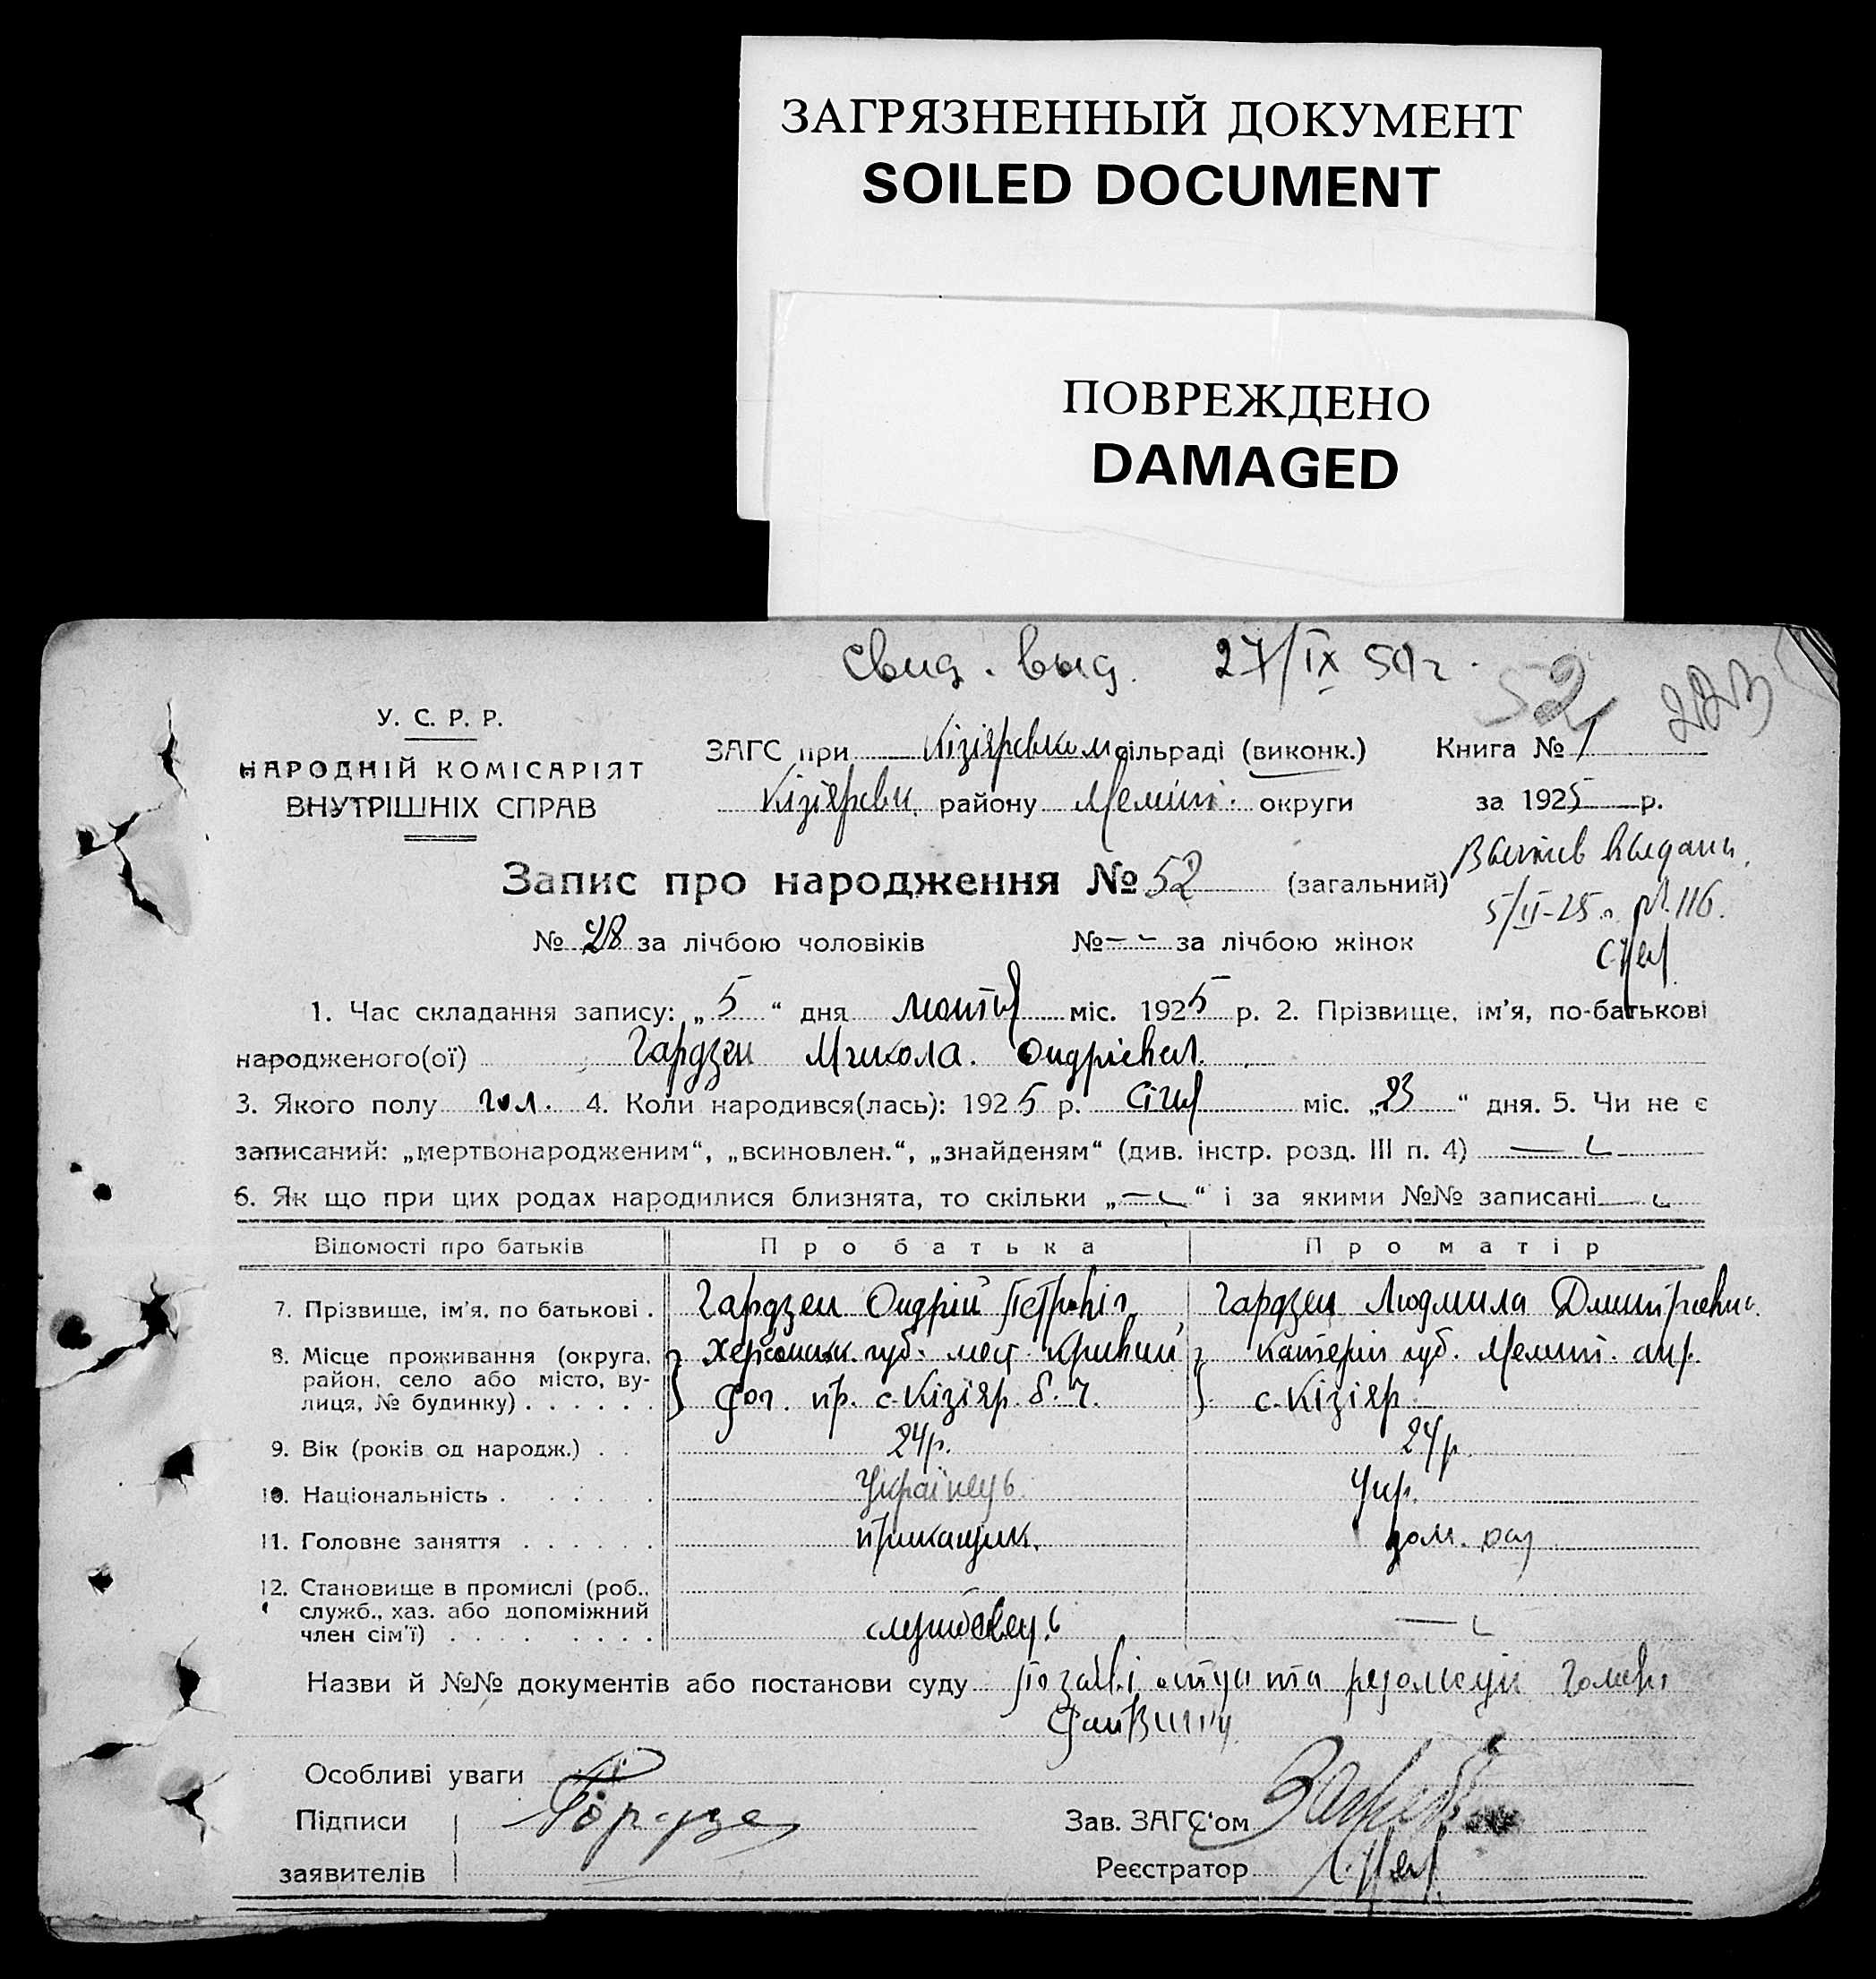 ЗАГРЯЗНЕННЫЙ ДОКУМЕНТ
SOILED DOCUMENT
ПОВРЕЖДЕНО
DAMAGED
свид. выд. 27/IX 50 г.
52
У. С. Р. Р.
НАРОДНІЙ КОМІСАРІЯТ
ВНУТРІШНІХ СПРАВ
ЗАГС при Кізіярськом сільраді (виконк.) Книга № 1
Кізіярськ. району Меліт. округи за 1925 р.
Запис про народження № 52 (загальний)
выдани
5/II-25 г. № 116.
№ 28 за лічбою чоловіків № — за лічбою жінок
1. Час складання запису: „5“ дня лютня міс. 1925 р. 2. Прізвище, ім'я, по-батькові
народженого(ої) Гардзен Микола Ондрієвич.
3. Якого полу чол. 4. Коли народився(лась): 1925 р. січня міс. „23“ дня. 5. Чи не є
записаний: „мертвонародженим“, „всиновлен.“, „знайденям“ (див. інстр. розд. III п. 4) —
6. Як що при цих родах народилися близнята, то скільки „—“ і за якими №№ записані —
Відомості про батьків Про батька Про матір
7. Прізвище, ім'я, по батькові . Гардзен Ондрій Петровіч Гардзен Людмила Дмитріевна
8. Місце проживання (округа, Херсонськ. губ. мест. Кривий Катерін губ. Меліт. окр.
район, село або місто, ву- Рог. пр. с. Кізіяр. б. ч. с. Кізіяр
лиця, № будинку) . . . . . .
9. Вік (років од народж.) . . 24 р. 24 р.
10. Національність . . . . . . Українець Укр.
11. Головне заняття . . . . . . прикащик. дом. раб
12. Становище в промислі (роб.,
служб., хаз. або допоміжний
член сім'ї) . . . . . . . . службовець —
Назви й №№ документів або постанови суду По заяві отця та резолюції Голови
Особливі уваги
Підписи Зав. ЗАГС'ом
заявителів Реєстратор